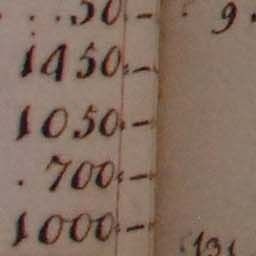 . . . 50. – . 9.
1450. –
1050. –
. 700. –
1000. –
131